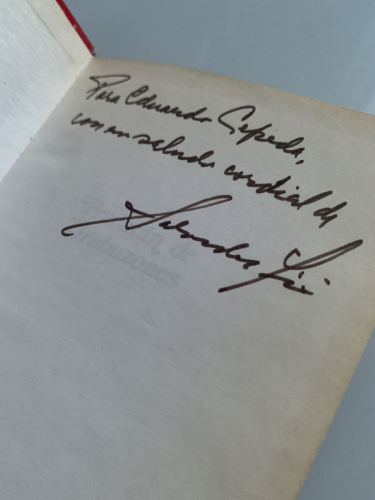 Para Eduardo Cepeda,
con un saludo cordial de
Salvador